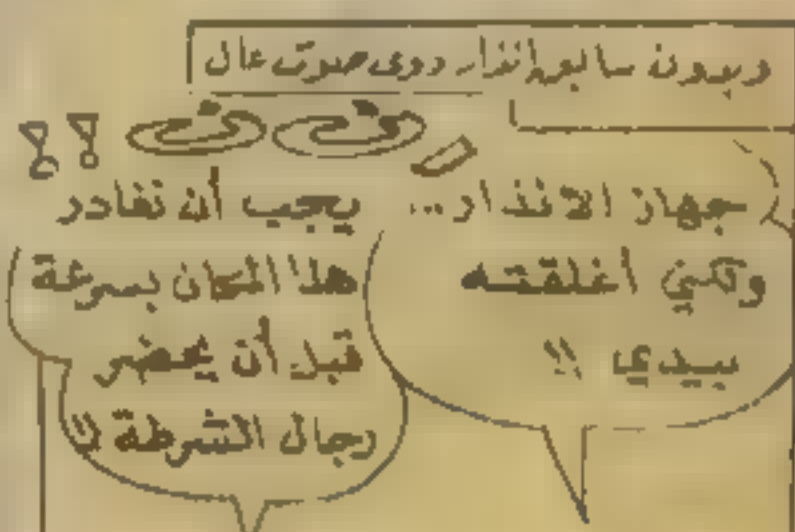 وبدون سابق انذار دوى صوت عال
ررن ن ن !!
جهاز الانذار...
ولكني أغلقته
بيدي !!
يجب أن نغادر
هذا المكان بسرعة
قبل أن يحضر
رجال الشرطة !!